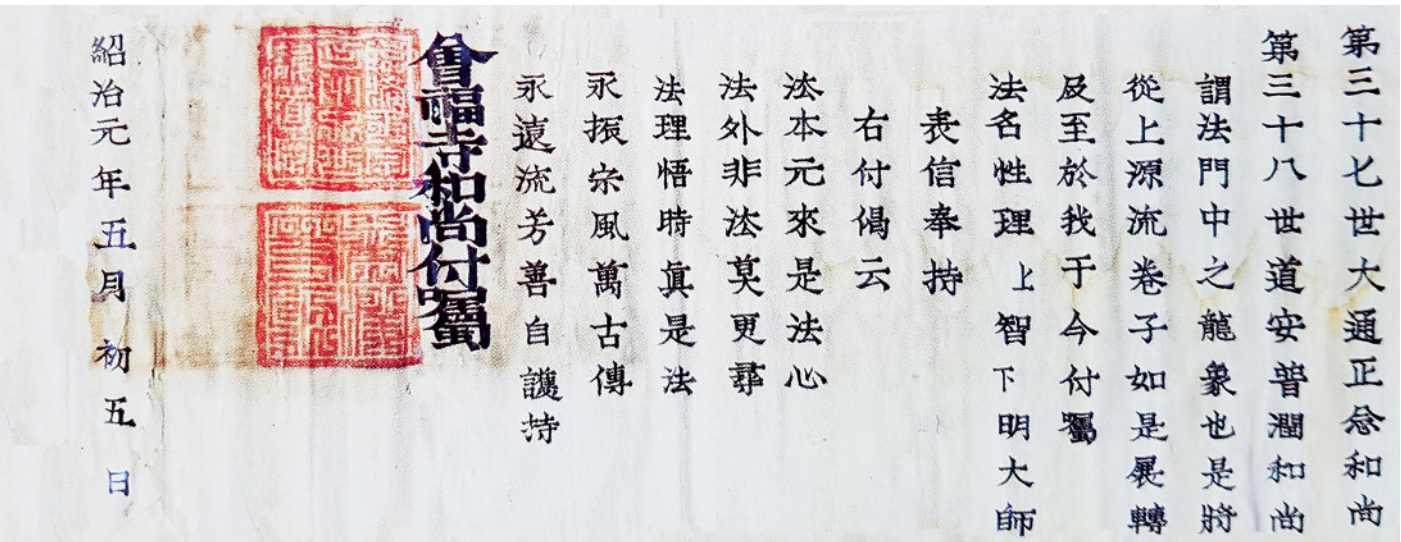 第三十七世大通正念和尚
第三十八世道安普潤和尚
謂法門中之龍象也是將
從上源流卷子如是展轉
及至於我于今付囑
法名性理上智下明大師
表信奉持
右付偈云
法本元來是法心
法外非法莫更尋
法理悟時眞是法
永振宗風萬古傳
永遠流芳善自護持
會福寺和尚付囑
紹治元年五月初五日